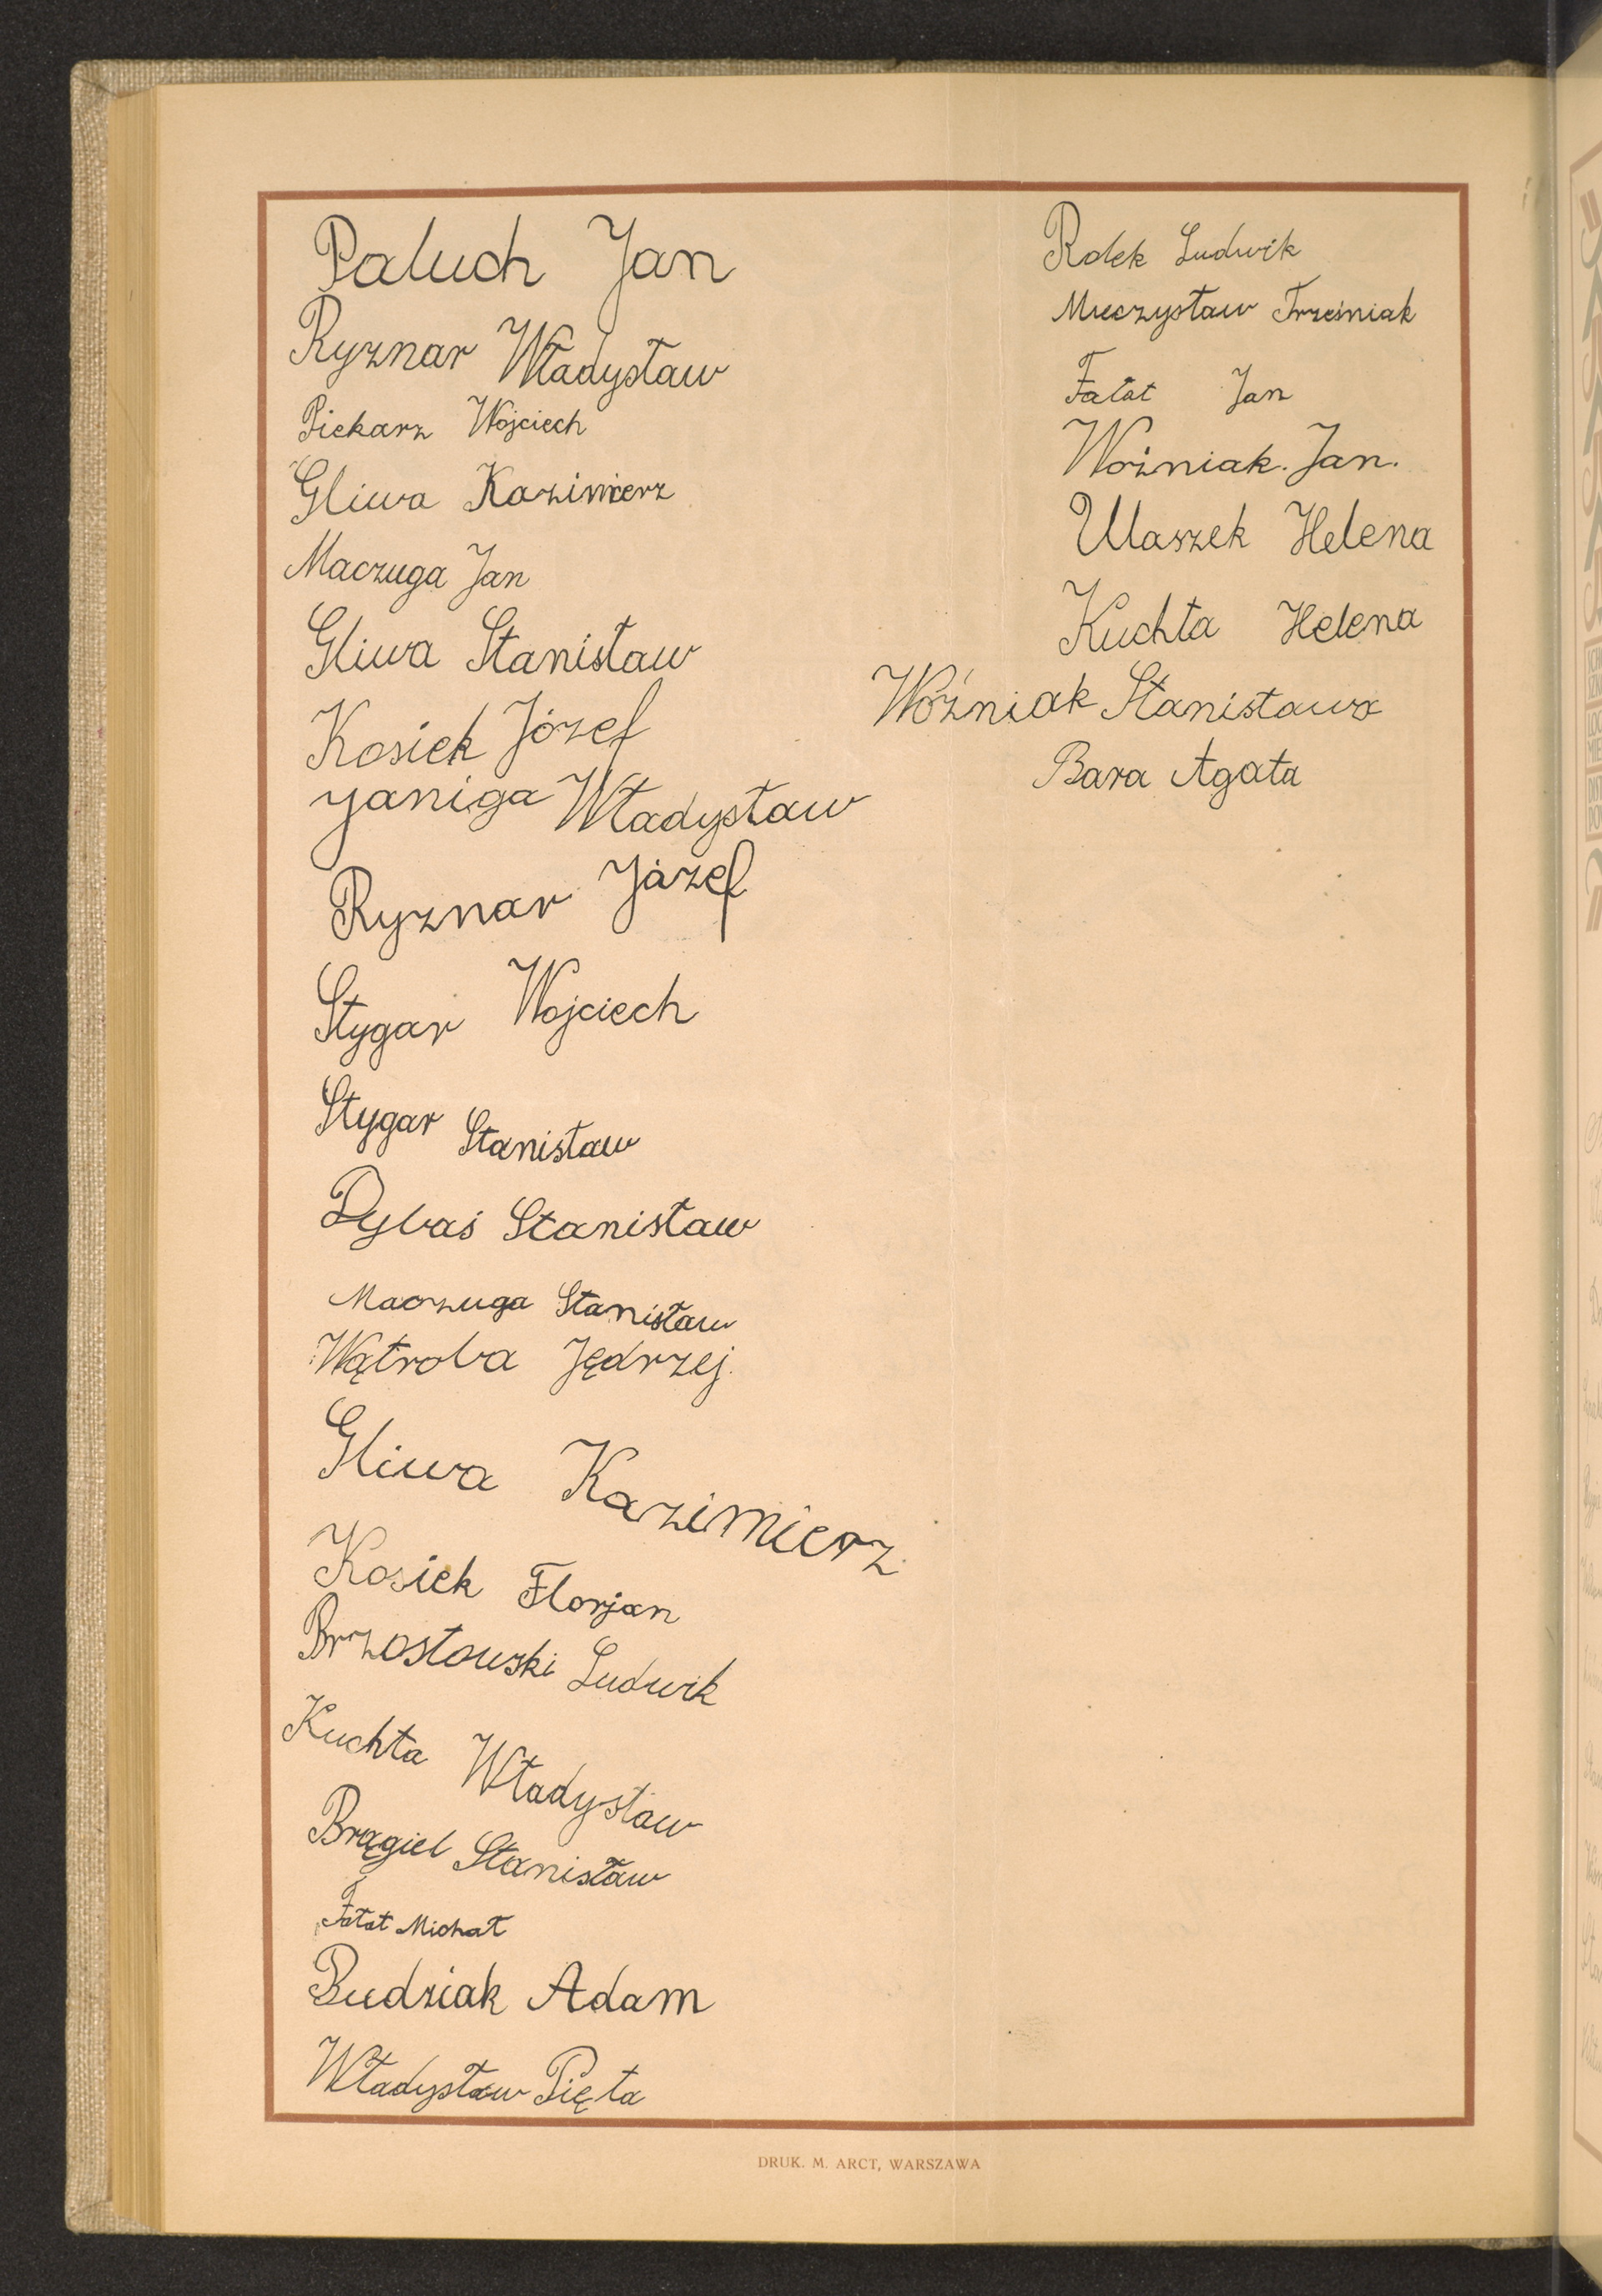 Paluch Jan
Ryznar Władysław
Piekarz Wojciech
Gliwa Kazimierz
Maczuga Jan
Gliwa Stanisław
Kosiek Józef
Janiga Władysław
Ryznar Józef
Stygar Wojciech
Stygar Stanisław
Dybaś Stanisław
Maczuga Stanisław
Wątroba Jędrzej
Gliwa Kazimierz
Kosiek Florjan
Brzostowski Ludwik
Kuchta Władysław
Brągiel Stanisław
Fatat Michał
Budziak Adam
Władysław Pięta
Rolek Ludwik
Mieczysław Trześniak
Fałat Jan
Woźniak. Jan.
Ulaszek Helena
Kuchta Helena
Woźniak Stanisława
Bara Agata
DRUK. M. ARCT, WARSZAWA